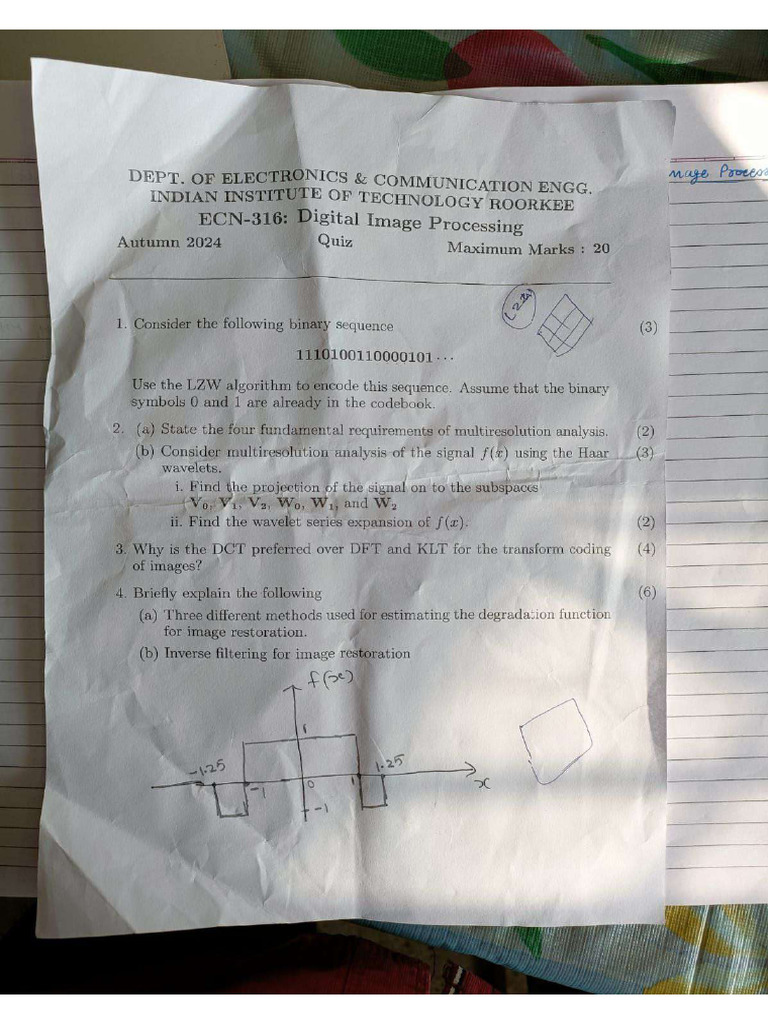 DEPT. OF ELECTRONICS & COMMUNICATION ENGG.
INDIAN INSTITUTE OF TECHNOLOGY ROORKEE
ECN-316: Digital Image Processing
Autumn 2024 Quiz Maximum Marks : 20
1. Consider the following binary sequence (3)
1110100110000101···
Use the LZW algorithm to encode this sequence. Assume that the binary
symbols 0 and 1 are already in the codebook.
2. (a) State the four fundamental requirements of multiresolution analysis. (2)
(b) Consider multiresolution analysis of the signal f(x) using the Haar (3)
wavelets.
i. Find the projection of the signal on to the subspaces
V₀, V₁, V₂, W₀, W₁, and W₂
ii. Find the wavelet series expansion of f(x). (2)
3. Why is the DCT preferred over DFT and KLT for the transform coding (4)
of images?
4. Briefly explain the following (6)
(a) Three different methods used for estimating the degradation function
for image restoration.
(b) Inverse filtering for image restoration
f(x)
1
-1.25 1.25
-1 0 1 x
-1